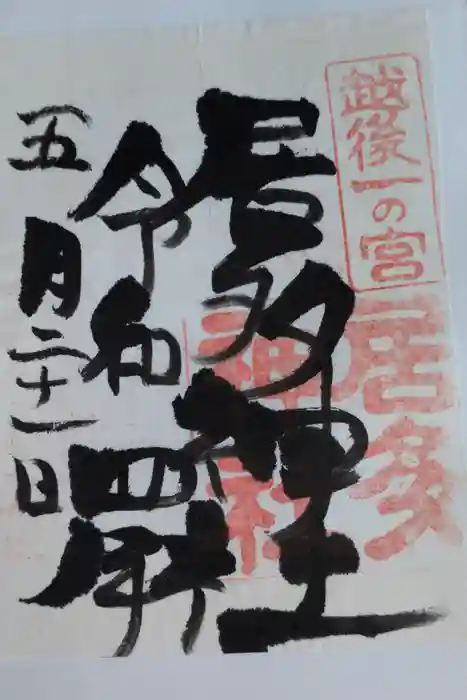 越後一の宮
居多
神社
居多神社
令和四年
五月二十一日